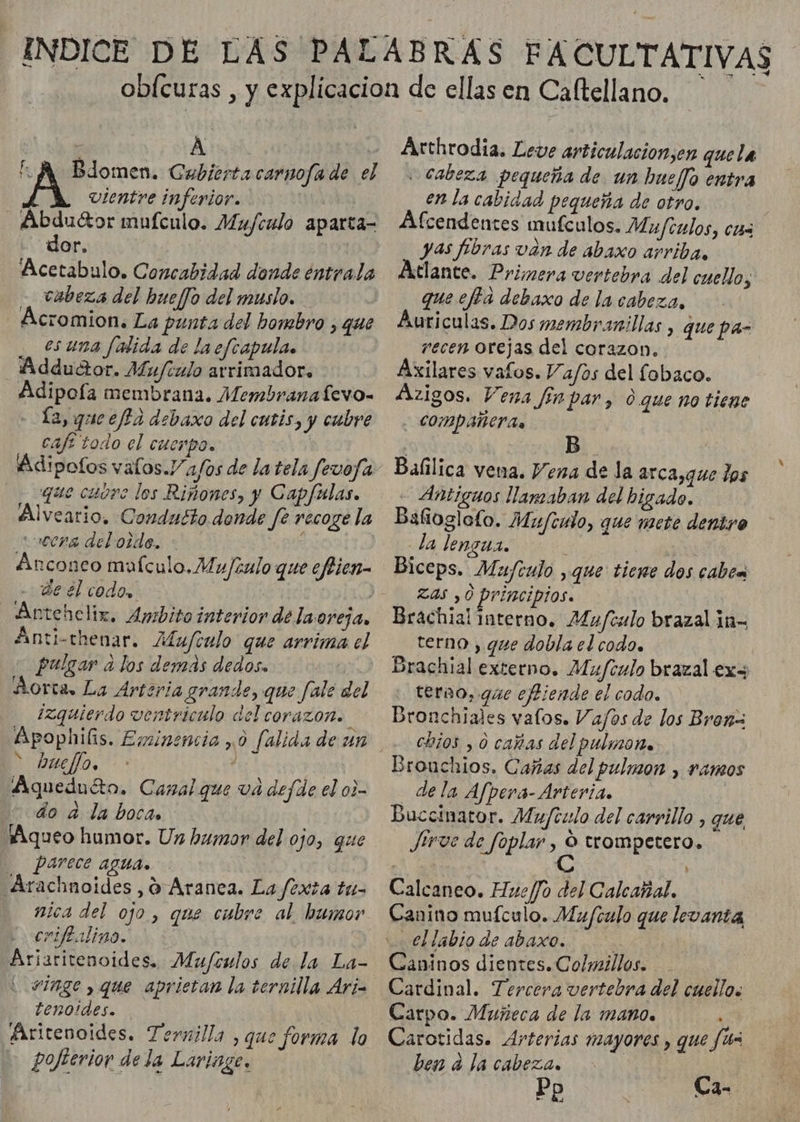 INDICE DE LAS PALABRAS FACULTATIVAS
obſcuras , y explicacion de ellas en Caſtellano.
A
ABdomen. Cubierta carnoſa de el
vientre inferior.
Abductor muſculo. Muſculo aparta-
dor.
Acetabulo. Concabidad donde entra la
cabeza del hueſſo del muslo.
Acromion. La punta del hombro , que
es una ſalida de la eſcapula.
Adductor. Muſculo arrimador.
Adipoſa membrana. Membrana ſevo-
ſa, que eſtà debaxo del cutis, y cubre
caſi todo el cuerpo.
Adipoſos vaſos. Vaſos de la tela ſevoſa
que cubre los Riñones, y Capſulas.
Alveario. Conducto donde ſe recoge la
cera del oìdo.
Anconeo muſculo. Muſculo que eſtien-
de él codo.
Antehelix. Ambito interior de la oreja.
Anti-thenar. Muſculo que arrima el
pulgar à los demàs dedos.
Aorta. La Arteria grande, que ſale del
izquierdo ventriculo del corazon.
Apophiſis. Eminencia , ò ſalida de un
hueſſo.
Aqueducto. Canal que và deſde el oì-
do à la boca.
Aqueo humor. Un humor del ojo, que
parece agua.
Arachnoides , ò Aranea. La ſexta tu-
nica del ojo , que cubre al humor
criſtalino.
Ariaritenoides. Muſculos de la La-
ringe , que aprietan la ternilla Ari-
tenoides.
Aritenoides. Ternilla , que forma lo
poſterior de la Laringe.
Arthrodia. Leve articulacion, en que la
cabeza pequeña de un hueſſo entra
en la cabidad pequeña de otro.
Aſcendentes muſculos. Muſculos, cu-
yas fibras vàn de abaxo arriba.
Atlante. Primera vertebra del cuello,
que eſtà debaxo de la cabeza.
Auriculas. Dos membranillas , que pa-
recen orejas del corazon.
Axilares vaſos. Vaſos del ſobaco.
Azigos. Vena ſin par , ò que no tiene
compañera.
B
Baſilica vena. Vena de la arca, que los
Antiguos llamaban del higado.
Baſiogloſo. Muſculo, que mete dentro
la lengua.
Biceps. Muſculo , que tiene dos cabe-
zas , ò principios.
Brachial interno. Muſculo brazal in-
terno , que dobla el codo.
Brachial externo. Muſculo brazal ex-
terno, que eſtiende el codo.
Bronchiales vaſos. Vaſos de los Bron-
chios , ò cañas del pulmon.
Bronchios. Cañas del pulmon , ramos
de la Aſpera-Arteria.
Buccinator. Muſculo del carrillo , que
ſirve de ſoplar , ò trompetero.
C
Calcaneo. Hueſſo del Calcañal.
Canino muſculo. Muſculo que levanta
el labio de abaxo.
Caninos dientes. Colmillos.
Cardinal. Tercera vertebra del cuello.
Carpo. Muñeca de la mano.
Carotidas. Arterias mayores , que ſu-
ben à la cabeza.
Pp
Ca-